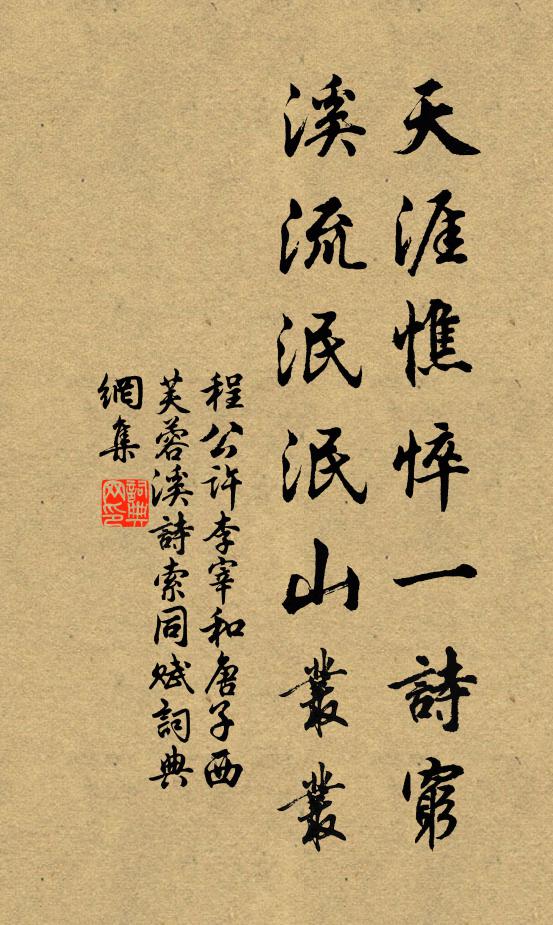 天涯憔悴一詩窮
溪流泯泯山叢叢
程公許李宰和唐子西
芙蓉溪詩索同賦詞典
網集
詞典
网印